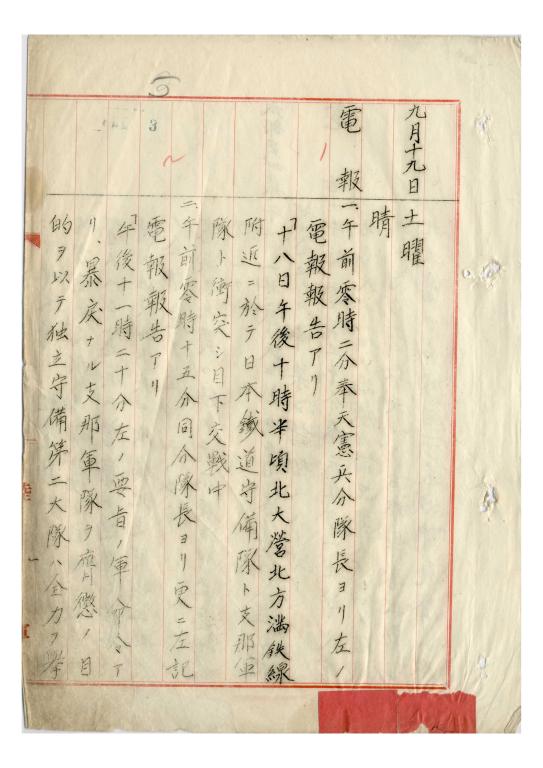 九月十九日 土曜
晴
電報 一、午前零時二分奉天憲兵分隊長ヨリ左ノ
電報報告アリ
「十八日午後十時半頃北大營北方滿鉄線
附近ニ於テ日本鐵道守備隊ト支那軍
隊ト衝突シ目下交戰中
二、午前零時十五分同分隊長ヨリ更ニ左記
電報報告アリ
「午後十一時二十分左ノ要旨ノ軍命令ア
リ、暴戻ナル支那軍隊ヲ膺懲ノ目
的ヲ以テ独立守備第二大隊ハ全力ヲ挙
3